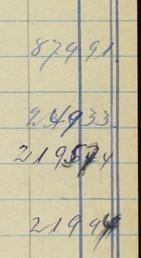 87991
24933
219544
21994